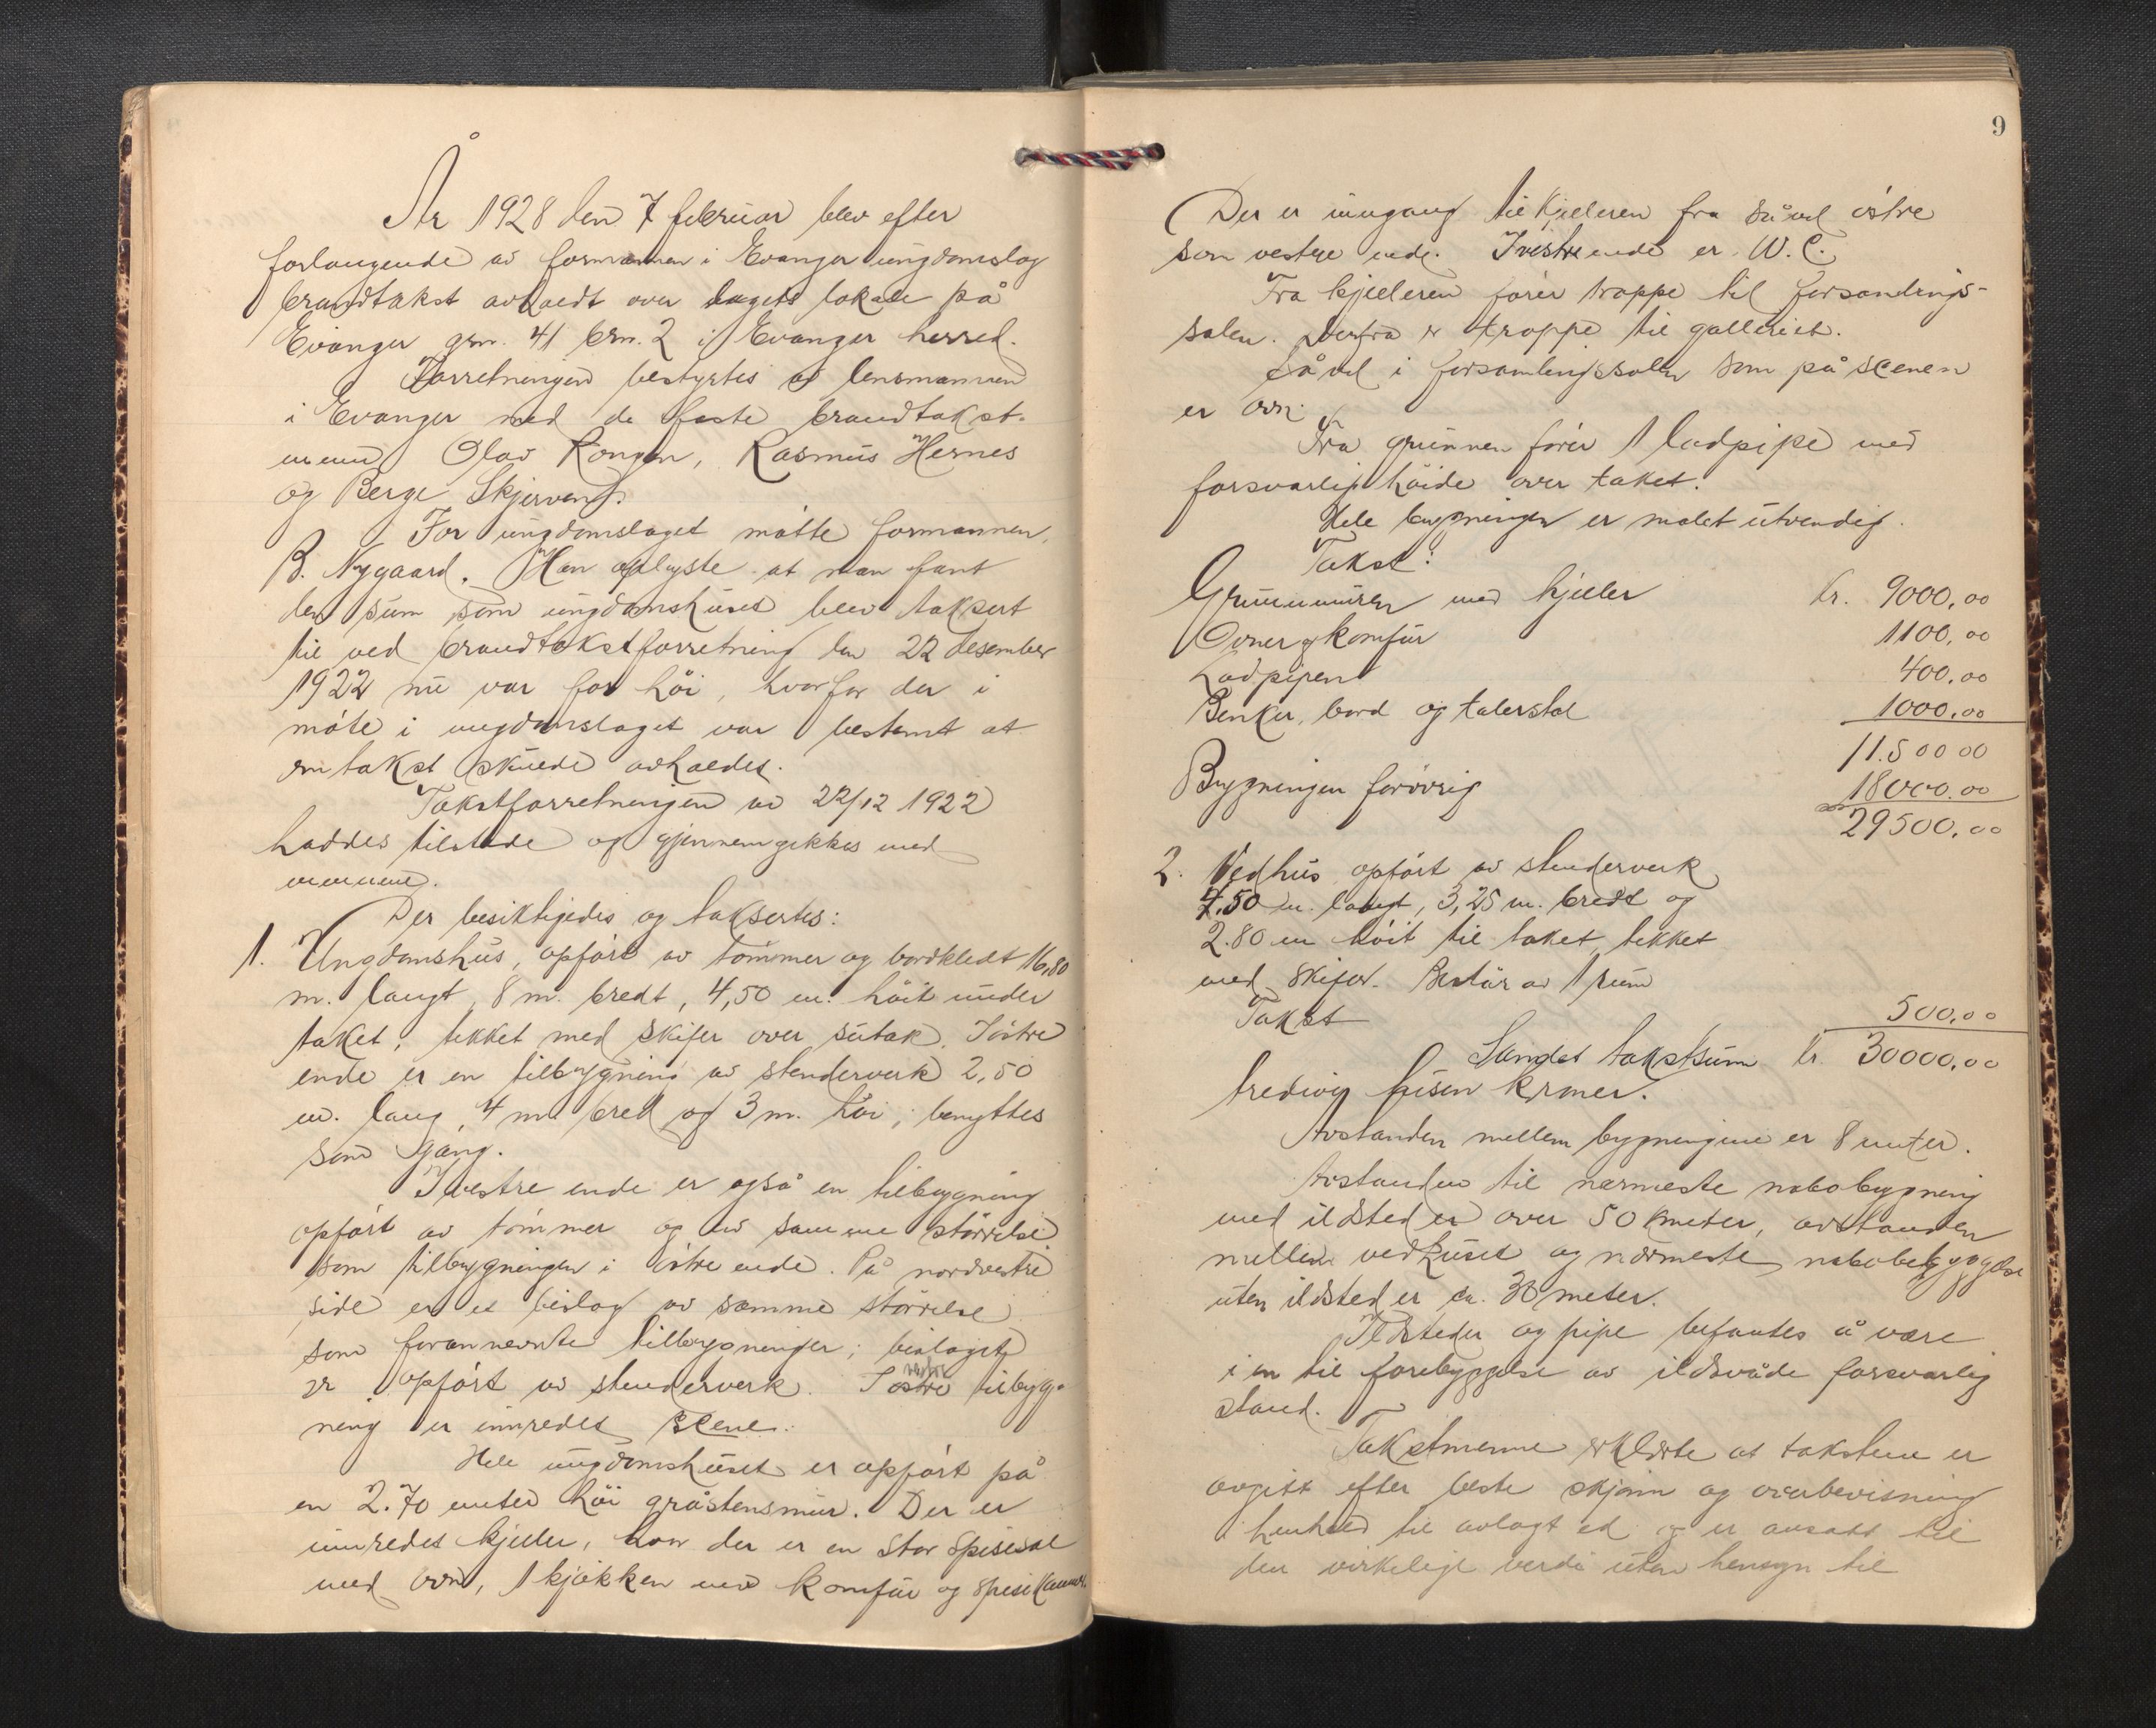 År 1928 den 7 februar blev efter
forlangende av formannen i Evanger ungdomslag
brandtakst avholdt over lagets lokale på
Evanger grn. 41 brn. 2 i Evanger herred.
Forretningen bestyrtes av lensmannen
i Evanger med de faste brandtakst-
menn Olav Rongen, Rasmus Hernes
og Berge Skjerven.
For ungdomslaget møtte formannen,
B. Nygaard. Han oplyste at man fant
den sum som ungdomshuset blev taksert
til ved brandtakstforretning den 22 desember
1922 nu var for høi, hvorfor der i
møte i ungdomslaget var bestemt at
omtakst skulde avholdes.
Takstforretningen av 22/12 1922
haddes tilstede og gjennemgikkes med
mennene.
Der besiktigedes og taksertes:
1. Ungdomshus, opført av tømmer og bordkledt 16,80
m. langt, 8 m. bredt, 4,50 m. høit under
taket, tekket med skifer over sutak. I østre
ende er en tilbygning av stenderverk 2,50
m. lang, 4 m. bred og 3 m. høi, benyttes
som gang.
I vestre ende er også en tilbygning
opført av tømmer og av samme størrelse
som tilbygningen i østre ende. På nordvestre
side er et bislag av samme størrelse
som forannevnte tilbygninger; bislaget
er opført av stenderverk. I østre vestre tilbyg-
ning er innredet scene.
Hele ungdomshuset er opført på
en 2.70 meter høi gråstensmur. Der er
innredet kjeller, hvor der er en stor spisesal
med ovn, 1 kjøkken med komfur og spisekammer.
9
Der er inngang til kjelleren fra såvel østre
som vestre ende. I vestre ende er W. C.
Fra kjelleren fører trappe til forsamlings-
salen. Derfra er trappe til galleriet.
Såvel i forsamlingssalen som på scenen
er ovn.
Fra grunnen fører 1 ladpipe med
forsvarlig høide over taket.
Hele bygningen er malet utvendig.
Takst:
Grunnmuren med kjeller kr. 9000,00
Ovner og komfur 1100,00
Ladpipen 400,00
Benker, bord og talerstol 1000,00
11.500 00
Bygningen forøvrig 18000.00
29500,00
2. Vedhus opført av stenderverk
4,50 m. langt, 3,25 m. bredt og
2.80 m høit til taket, tekket
med skifer. Består av 1 rum
Takst 500,00
Samlet takstsum kr. 30000,00
tredivetusen kroner.
Avstanden mellem bygningene er 8 meter.
Avstanden til nærmeste nabobygning
med ildsted er over 50 meter, avstanden
mellem vedhuset og nærmeste nabobebyggelse
uten ildsted er ca. 30 meter.
Ildsteder og pipe befantes å være
i en til forebyggelse av ildsvåde forsvarlig
stand.
Takstmennene erklærte at taksten er
avgitt efter beste skjønn og overbevisning
i henhold til avlagt ed og er ansatt til
den virkelige verdi uten hensyn til